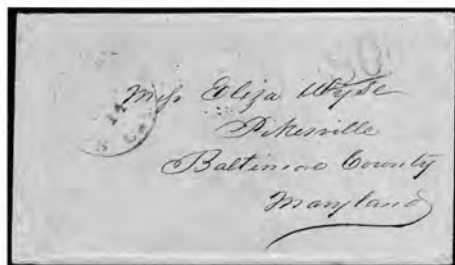 Miss Eliza Wyse
Pikesville
Baltimore County
Maryland
14